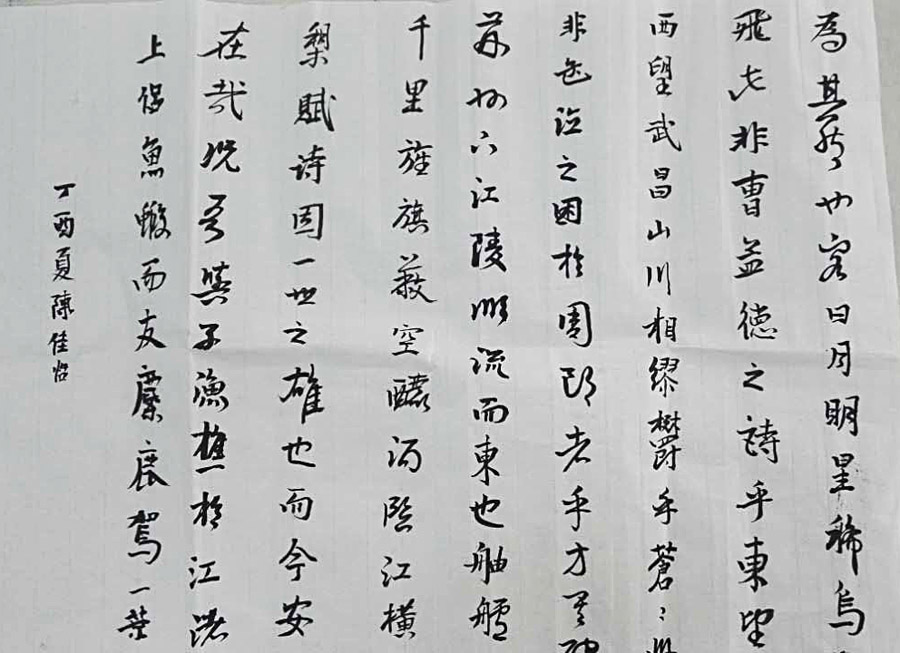 為其然也客曰月明星稀烏
飛此非曹孟德之詩乎東望
西望武昌山川相繆鬱乎蒼〻
非孟德之困於周郎者乎方其破
荊州下江陵順流而東也舳艫
千里旌旗蔽空釃酒臨江橫
槊賦詩固一世之雄也而今安
在哉況吾與子漁樵於江渚
上侶魚蝦而友麋鹿駕一葉
丁酉夏陳佳怡